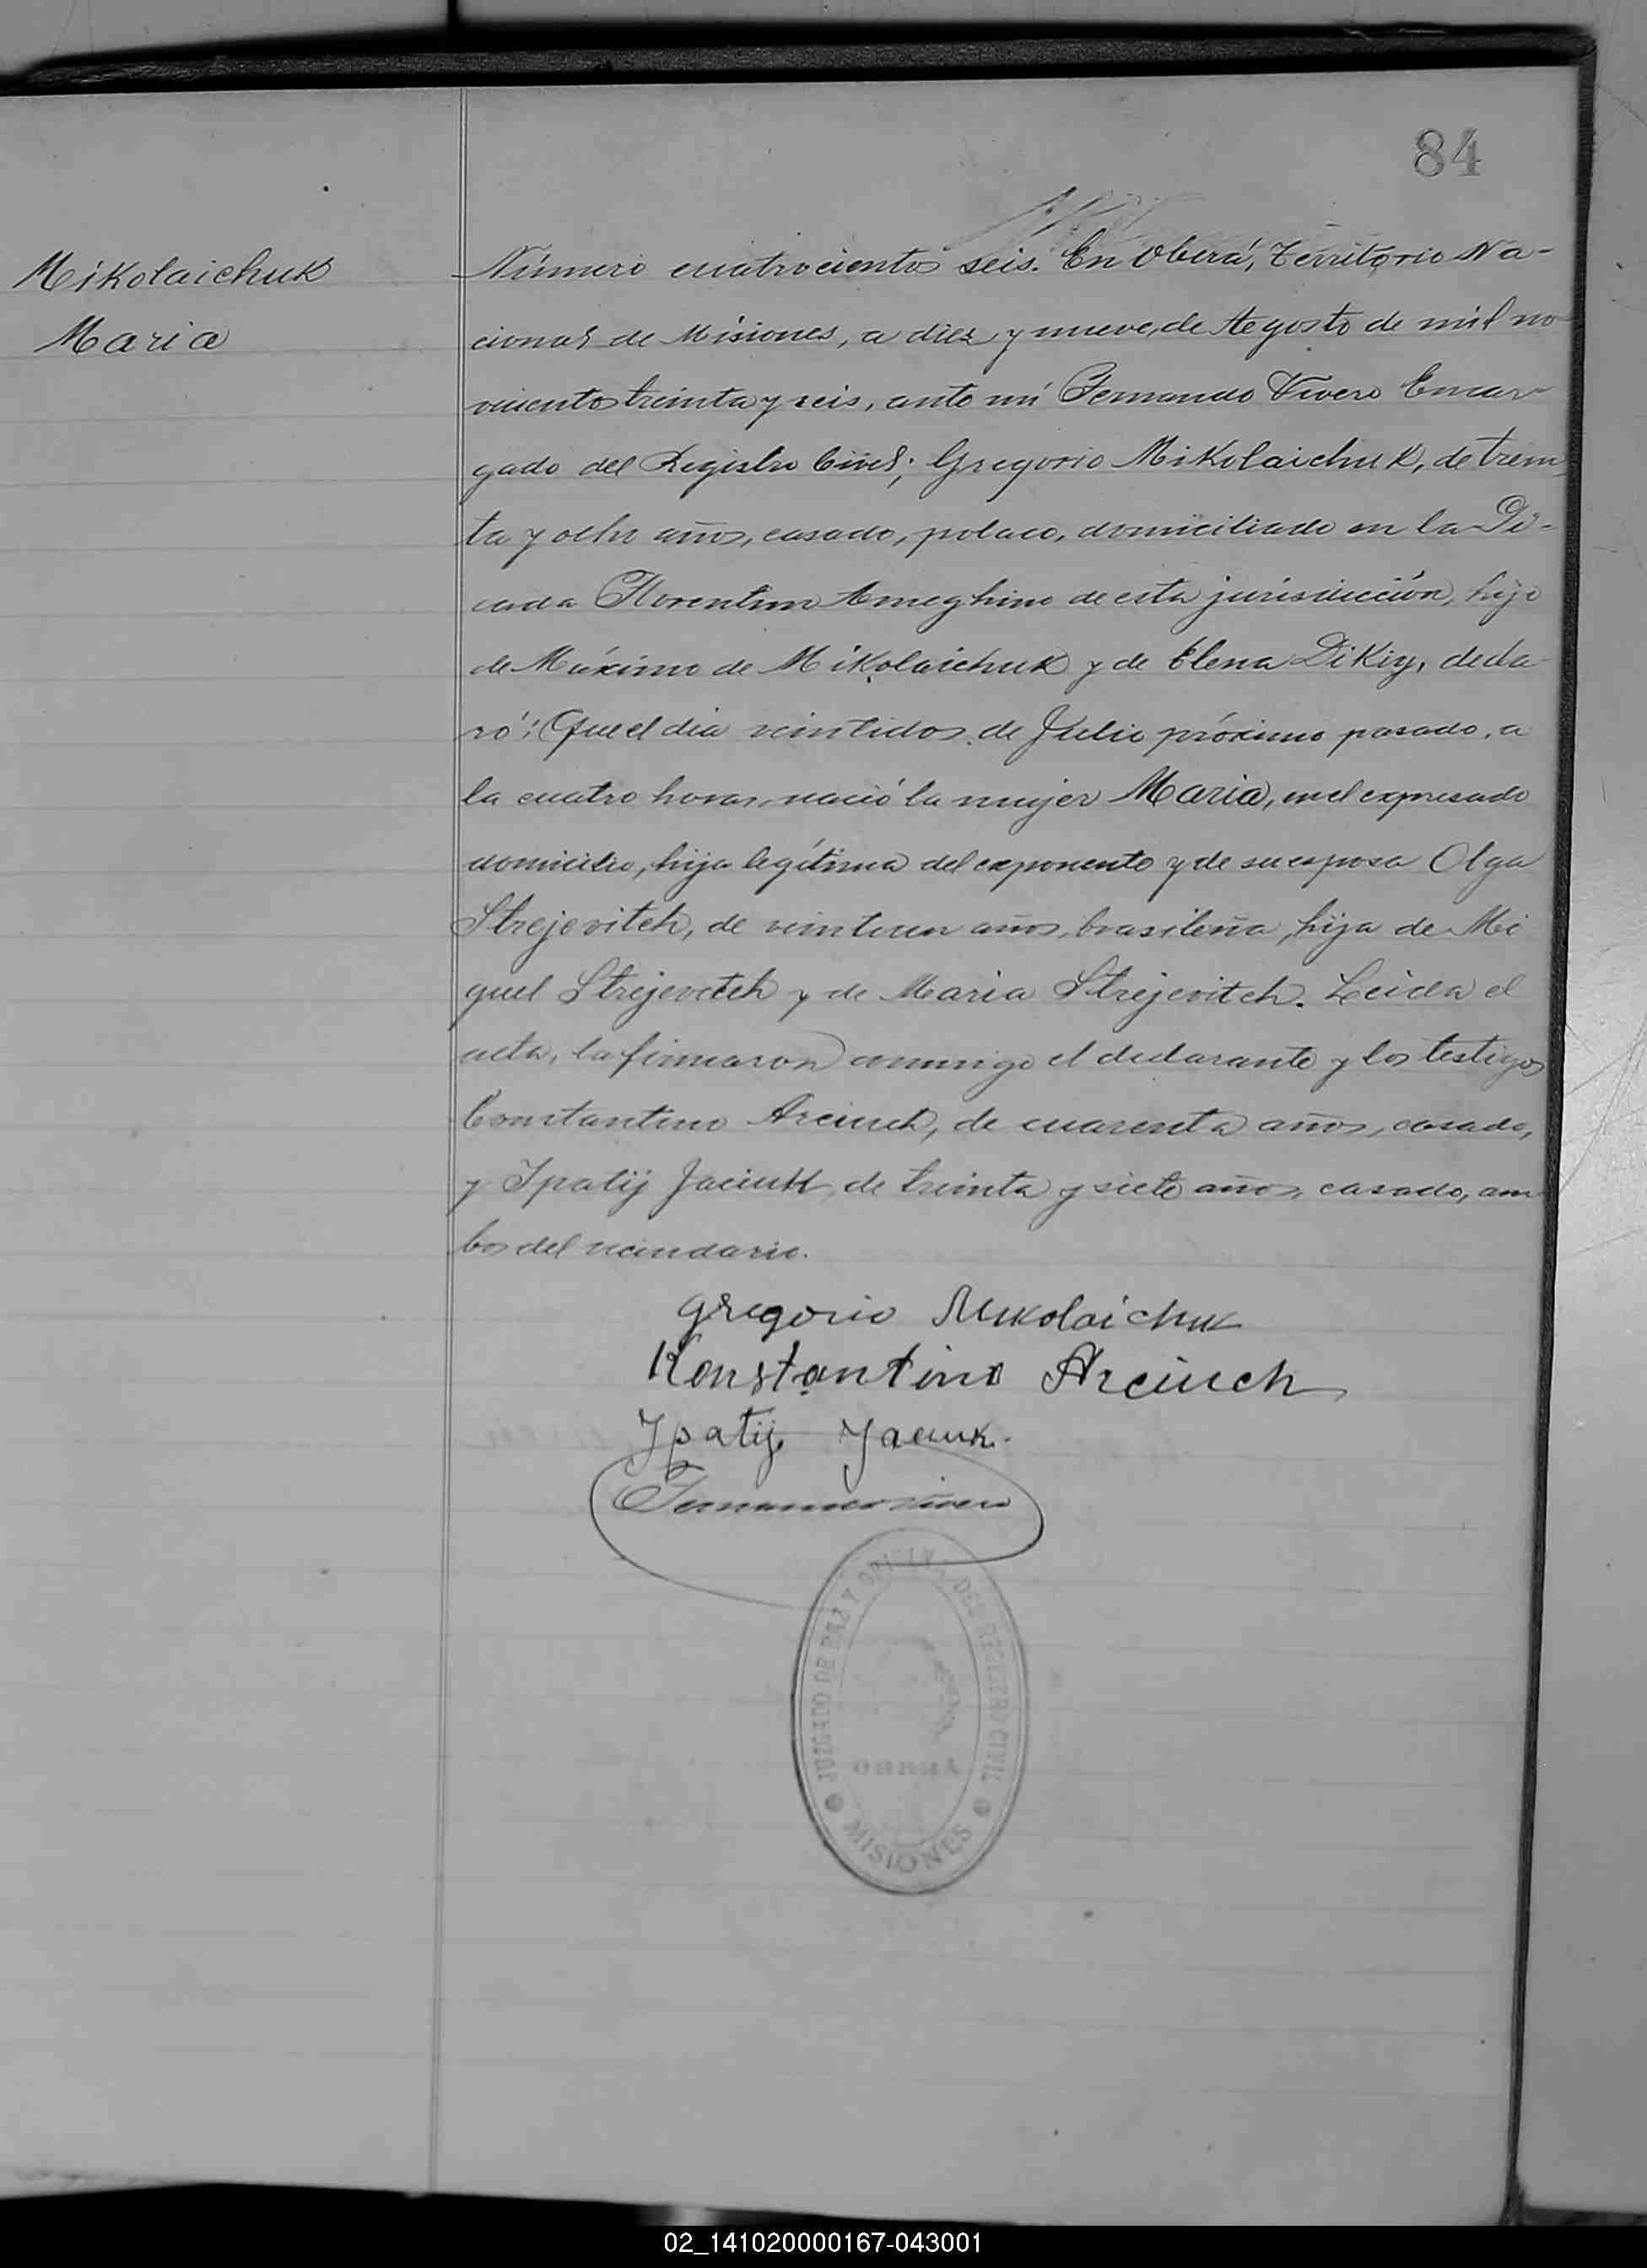 84
Mikolaichuk
Maria
Número cuatrocientos seis. En Oberá, Territorio Na-
cional de Misiones, a diez y nueve de Agosto de mil no-
vecientos treinta y seis, ante mí Fernando Vivero Encar-
gado del Registro Civil; Gregorio Mikolaichuk, de trein
ta y ocho años, casado, polaco, domiciliado en la Pi-
cada Florentino Ameghino de esta jurisdicción, hijo
de Máximo de Mikolaichuk y de Elena Dikiy, decla
ró: Que el día veintidos de Julio próximo pasado, a
la cuatro horas, nació la mujer Maria, en el expresado
domicilio, hija legítima del exponente y de su esposa Olga
Strejevitch, de veintiun años, brasileña, hija de Mi
guel Strejevitch y de Maria Strejevitch. Leida el
acta, la firmaron conmigo el declarante y los testigos
Constantino Arciuch, de cuarenta años, casado,
y Ipatij Jaciuk, de treinta y siete años, casado, am
bos del vecindario.
Gregorio Mikolaichuk
Konstantino Arciuch
Ipatij Jaciuk.
Fernando Vivero
JUZGADO DE PAZ Y OFICINA DEL REGISTRO CIVIL
OBERA
MISIONES
02_141020000167-043001